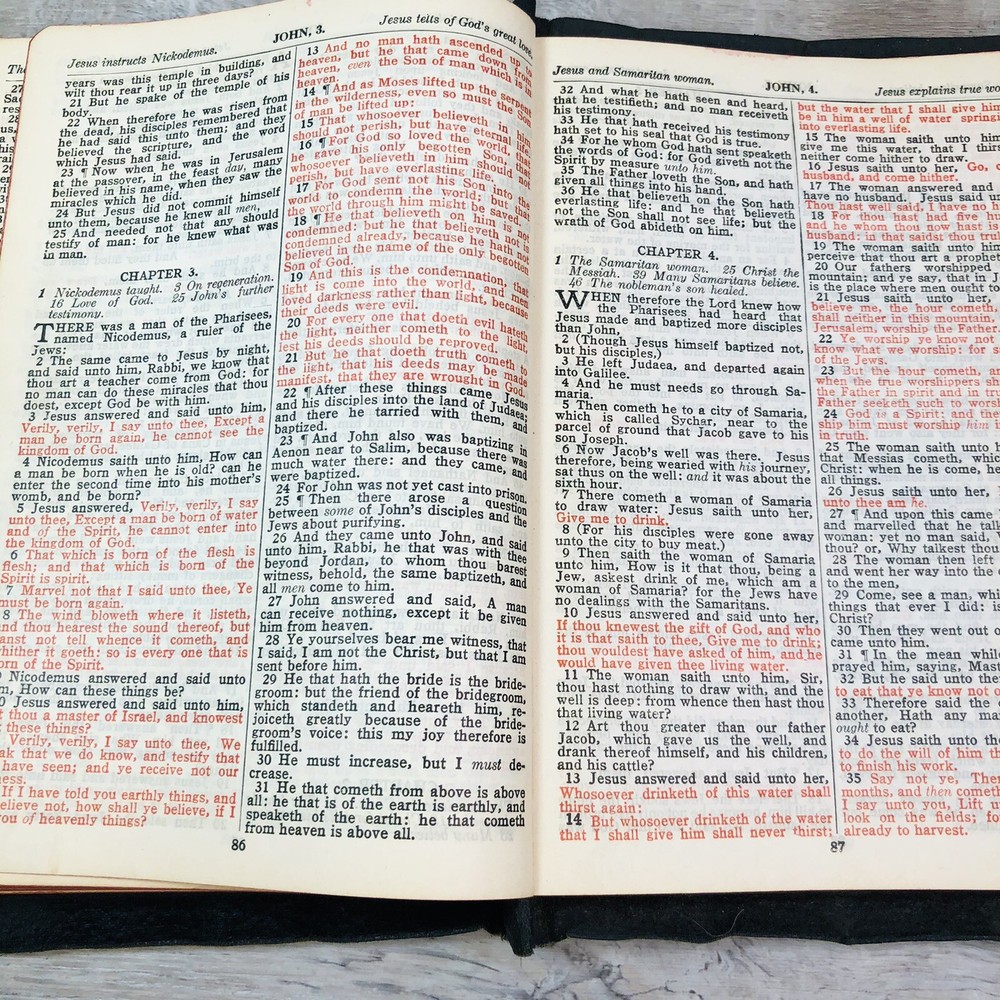 Jesus instructs Nickodemus.
JOHN, 3.
Jesus tells of God's great love.
years was this temple in building, and
wilt thou rear it up in three days?
21 But he spake of the temple of his
body.
22 When therefore he was risen from
the dead, his disciples remembered that
he had said this unto them; and they
believed the scripture, and the word
which Jesus had said.
23 ¶ Now when he was in Jerusalem
at the passover, in the feast day, many
believed in his name, when they saw the
miracles which he did.
24 But Jesus did not commit himself
unto them, because he knew all men,
25 And needed not that any should
testify of man: for he knew what was
in man.
CHAPTER 3.
1 Nickodemus taught. 3 On regeneration.
16 Love of God. 25 John's further
testimony.
THERE was a man of the Pharisees,
named Nicodemus, a ruler of the
Jews:
2 The same came to Jesus by night,
and said unto him, Rabbi, we know that
thou art a teacher come from God: for
no man can do these miracles that thou
doest, except God be with him.
3 Jesus answered and said unto him,
Verily, verily, I say unto thee, Except a
man be born again, he cannot see the
kingdom of God.
4 Nicodemus saith unto him, How can
a man be born when he is old? can he
enter the second time into his mother's
womb, and be born?
5 Jesus answered, Verily, verily, I say
unto thee, Except a man be born of water
and of the Spirit, he cannot enter into
the kingdom of God.
6 That which is born of the flesh is
flesh; and that which is born of the
Spirit is spirit.
7 Marvel not that I said unto thee, Ye
must be born again.
8 The wind bloweth where it listeth,
and thou hearest the sound thereof, but
canst not tell whence it cometh, and
whither it goeth: so is every one that is
born of the Spirit.
Nicodemus answered and said unto
him, How can these things be?
Jesus answered and said unto him,
thou a master of Israel, and knowest
these things?
Verily, verily, I say unto thee, We
speak that we do know, and testify that
have seen; and ye receive not our
If I have told you earthly things, and
believe not, how shall ye believe, if I
you of heavenly things?
13 And no man hath ascended up to
heaven, but he that came down from
heaven, even the Son of man which is in
heaven.
14 ¶ And as Moses lifted up the serpent
in the wilderness, even so must the Son
of man be lifted up:
15 That whosoever believeth in him
should not perish, but have eternal life.
16 ¶ For God so loved the world, that
he gave his only begotten Son, that
whosoever believeth in him should not
perish, but have everlasting life.
17 For God sent not his Son into the
world to condemn the world; but that
the world through him might be saved.
18 ¶ He that believeth on him is not
condemned: but he that believeth not is
condemned already, because he hath not
believed in the name of the only begotten
Son of God.
19 And this is the condemnation, that
light is come into the world, and men
loved darkness rather than light, because
their deeds were evil.
20 For every one that doeth evil hateth
the light, neither cometh to the light,
lest his deeds should be reproved.
21 But he that doeth truth cometh to
the light, that his deeds may be made
manifest, that they are wrought in God.
22 ¶ After these things came Jesus
and his disciples into the land of Judaea;
and there he tarried with them, and
baptized.
23 ¶ And John also was baptizing in
Aenon near to Salim, because there was
much water there: and they came, and
were baptized.
24 For John was not yet cast into prison.
25 ¶ Then there arose a question
between some of John's disciples and the
Jews about purifying.
26 And they came unto John, and said
unto him, Rabbi, he that was with thee
beyond Jordan, to whom thou barest
witness, behold, the same baptizeth, and
all men come to him.
27 John answered and said, A man
can receive nothing, except it be given
him from heaven.
28 Ye yourselves bear me witness, that
I said, I am not the Christ, but that I am
sent before him.
29 He that hath the bride is the bride-
groom: but the friend of the bridegroom,
which standeth and heareth him, re-
joiceth greatly because of the bride-
groom's voice: this my joy therefore is
fulfilled.
30 He must increase, but I must de-
crease.
31 He that cometh from above is above
all: he that is of the earth is earthly, and
speaketh of the earth: he that cometh
from heaven is above all.
86
Jesus and Samaritan woman.
JOHN, 4.
Jesus explains true wo
32 And what he hath seen and heard,
that he testifieth; and no man receiveth
his testimony.
33 He that hath received his testimony
hath set to his seal that God is true.
34 For he whom God hath sent speaketh
the words of God: for God giveth not the
Spirit by measure unto him.
35 The Father loveth the Son, and hath
given all things into his hand.
36 He that believeth on the Son hath
everlasting life: and he that believeth
not the Son shall not see life; but the
wrath of God abideth on him.
CHAPTER 4.
1 The Samaritan woman. 25 Christ the
Messiah. 39 Many Samaritans believe.
46 The nobleman's son healed.
WHEN therefore the Lord knew how
the Pharisees had heard that
Jesus made and baptized more disciples
than John,
2 (Though Jesus himself baptized not,
but his disciples,)
3 He left Judaea, and departed again
into Galilee.
4 And he must needs go through Sa-
maria.
5 Then cometh he to a city of Samaria,
which is called Sychar, near to the
parcel of ground that Jacob gave to his
son Joseph.
6 Now Jacob's well was there. Jesus
therefore, being wearied with his journey,
sat thus on the well: and it was about the
sixth hour.
7 There cometh a woman of Samaria
to draw water: Jesus saith unto her,
Give me to drink.
8 (For his disciples were gone away
unto the city to buy meat.)
9 Then saith the woman of Samaria
unto him, How is it that thou, being a
Jew, askest drink of me, which am a
woman of Samaria? for the Jews have
no dealings with the Samaritans.
10 Jesus answered and said unto her,
If thou knewest the gift of God, and who
it is that saith to thee, Give me to drink;
thou wouldest have asked of him, and he
would have given thee living water.
11 The woman saith unto him, Sir,
thou hast nothing to draw with, and the
well is deep: from whence then hast thou
that living water?
12 Art thou greater than our father
Jacob, which gave us the well, and
drank thereof himself, and his children,
and his cattle?
13 Jesus answered and said unto her,
Whosoever drinketh of this water shall
thirst again:
14 But whosoever drinketh of the water
that I shall give him shall never thirst;
but the water that I shall give him
be in him a well of water springi
into everlasting life.
15 The woman saith unto him
give me this water, that I thirs
neither come hither to draw.
16 Jesus saith unto her, Go, c
husband, and come hither.
17 The woman answered and
have no husband. Jesus said u
Thou hast well said, I have no h
18 For thou hast had five hu
and he whom thou now hast is
husband: in that saidst thou tru
19 The woman saith unto him
perceive that thou art a prophet
20 Our fathers worshipped
mountain; and ye say, that in J
is the place where men ought to
21 Jesus saith unto her,
believe me, the hour cometh,
shall neither in this mountain,
Jerusalem, worship the Father.
22 Ye worship ye know not
know what we worship: for s
of the Jews.
23 But the hour cometh,
when the true worshippers sh
the Father in spirit and in tru
Father seeketh such to worsh
24 God is a Spirit: and the
ship him must worship him i
in truth.
25 The woman saith unto h
that Messias cometh, which
Christ: when he is come, he
all things.
26 Jesus saith unto her,
unto thee am he.
27 ¶ And upon this came
and marvelled that he talk
woman: yet no man said, W
thou? or, Why talkest thou
28 The woman then left
and went her way into the c
to the men,
29 Come, see a man, whi
things that ever I did: i
Christ?
30 Then they went out o
came unto him.
31 ¶ In the mean while
prayed him, saying, Mast
32 But he said unto the
to eat that ye know not o
33 Therefore said the d
another, Hath any ma
ought to eat?
34 Jesus saith unto th
to do the will of him th
to finish his work.
35 Say not ye, Ther
months, and then cometh
I say unto you, Lift u
look on the fields; fo
already to harvest.
87